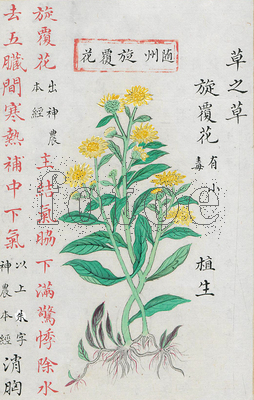 草之草
旋覆花 有小毒 植生
随州旋覆花
旋覆花 出神農本經 主結氣脇下滿驚悸除水
去五臟間寒熱補中下氣 以上朱字神農本經 消胸